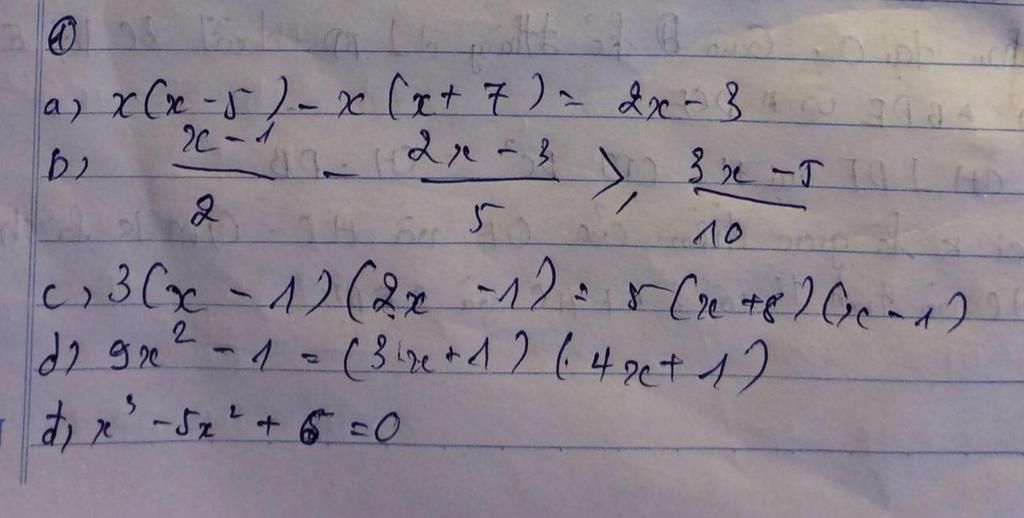 ①
a) x(x - 5) - x(x + 7) = 2x - 3
b) (x - 1)/2 - (2x - 3)/5 ≥ (3x - 5)/10
c) 3(x - 1)(2x - 1) = 5(x + 8)(x - 1)
d) 9x² - 1 = (3x + 1)(4x + 1)
đ) x³ - 5x² + 6 = 0